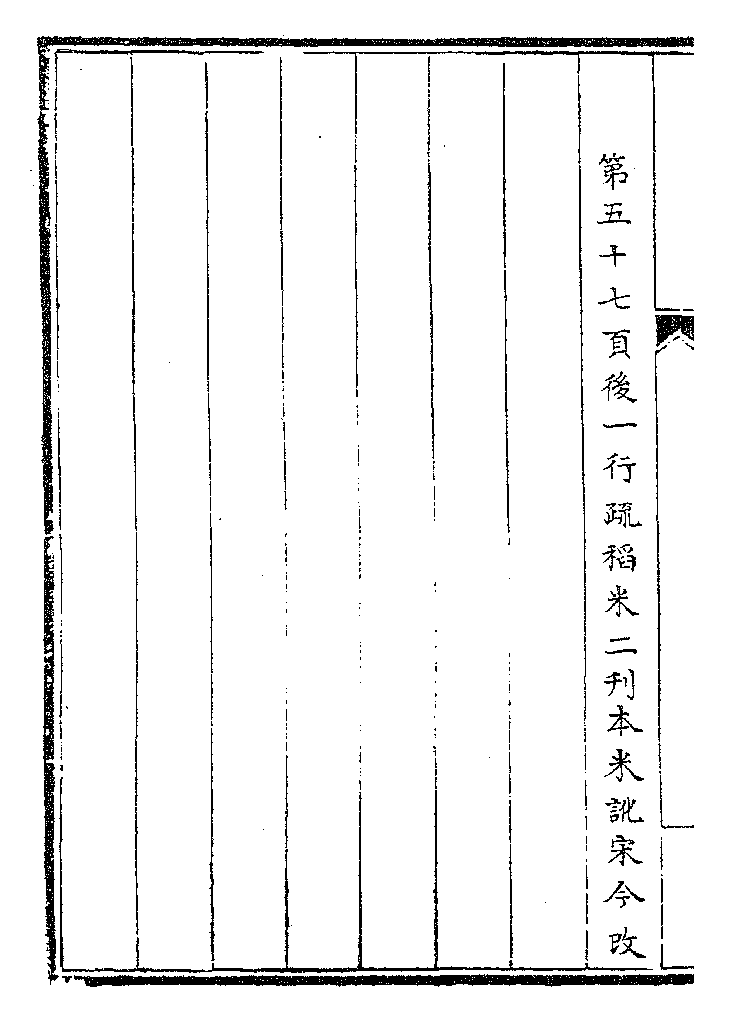 第五十七頁後一行疏稻米二刋本米訛宋今改